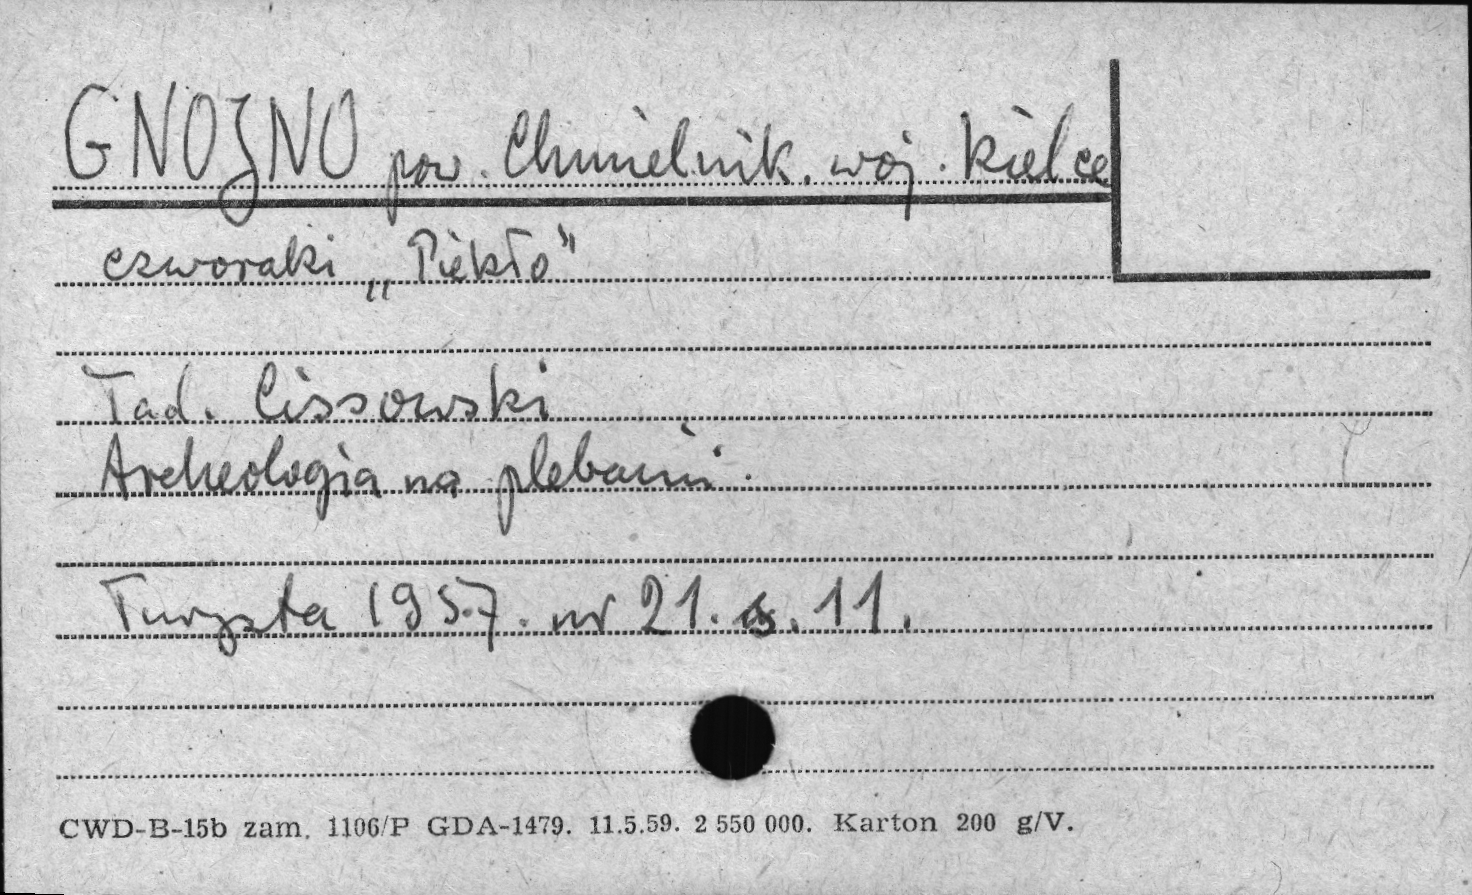 GNOJNO pow. Chmielnik. woj. Kielce
czworaki „Piekło”
Tad. Cissowski
Archeologia na plebanii.
Turysta 1957. nr 21. s. 11.
CWD-B-15b zam. 1106/P GDA-1479. 11.5.59. 2 550 000. Karton 200 g/V.